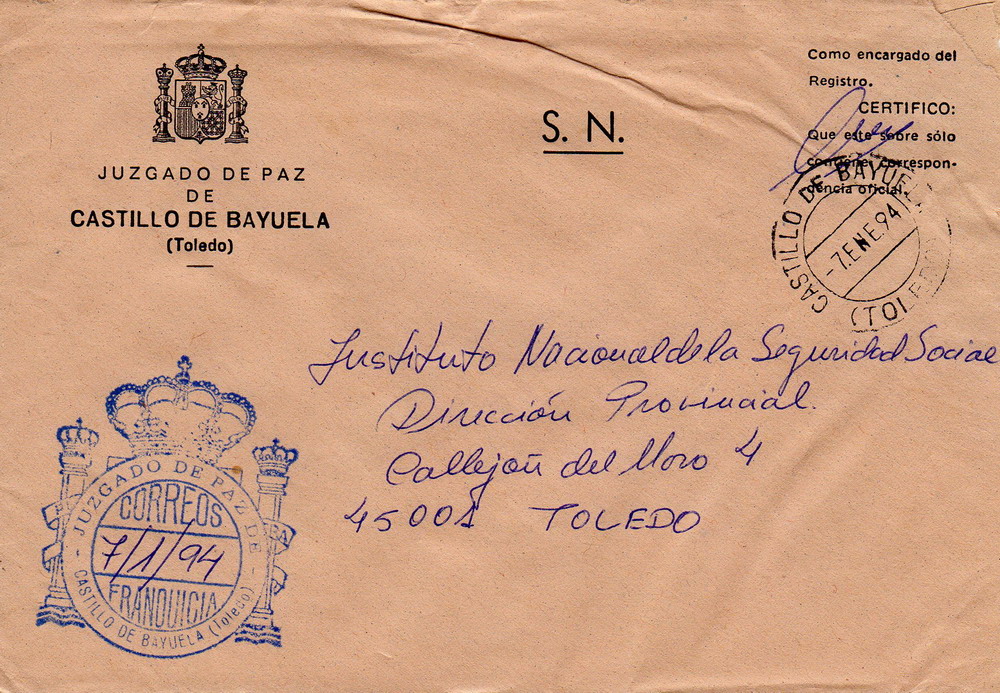 JUZGADO DE PAZ
DE
CASTILLO DE BAYUELA
(Toledo)
S. N.
Como encargado del
Registro.
CERTIFICO:
Que este sobre sólo
contiene correspon-
dencia oficial.
CASTILLO DE BAYUELA
-7.ENE.94
(TOLEDO)
Instituto Nacional de la Seguridad Social
Dirección Provincial.
Callejón del Moro 4
45001 TOLEDO
JUZGADO DE PAZ DE
CORREOS
7/1/94
FRANQUICIA
- CASTILLO DE BAYUELA (Toledo) -